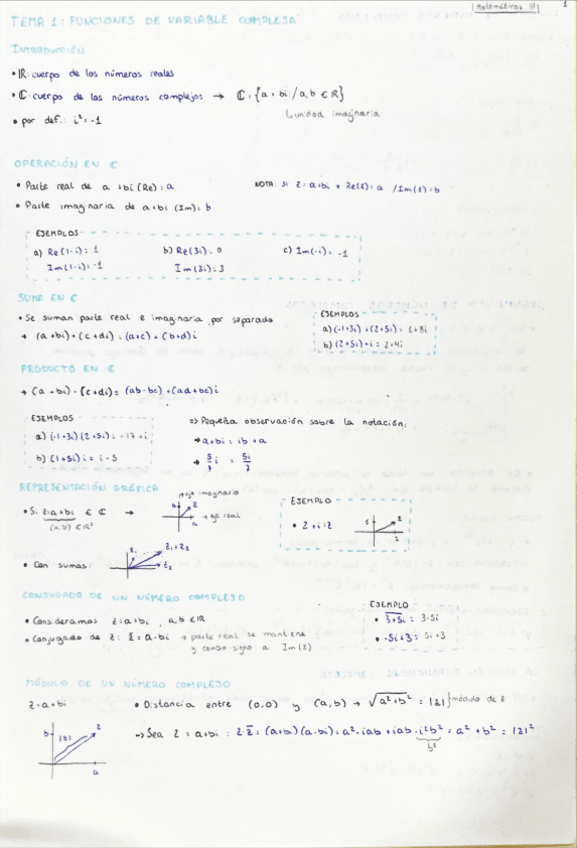 Matemáticas III 1
TEMA 1: FUNCIONES DE VARIABLE COMPLEJA
INTRODUCCIÓN
• ℝ: cuerpo de los números reales
• ℂ: cuerpo de los números complejos → ℂ: {a + bi / a, b ∈ ℝ}
unidad imaginaria
• por def.: i² = -1
OPERACIÓN EN ℂ
• Parte real de a + bi (Re): a
NOTA: Si z = a+bi → Re(z) = a / Im(z) = b
• Parte imaginaria de a+bi (Im): b
EJEMPLOS
a) Re(1-i) = 1 b) Re(3i) = 0 c) Im(-i) = -1
Im(1-i) = -1 Im(3i) = 3
SUMA EN ℂ
• Se suman parte real e imaginaria por separado
→ (a+bi) + (c+di) = (a+c) + (b+d)i
EJEMPLOS
a) (-1+3i) + (2+5i) = 1+8i
b) (2+5i)+i = 2+4i
PRODUCTO EN ℂ
→ (a+bi) · (c+di) = (ab-bc) + (ad+bc)i
EJEMPLOS
a) (-1+3i)(2+5i) = -17+i
b) (1+5i)i = i-5
=> Pequeña observación sobre la notación:
→ a+bi = ib+a
→ 5/7 i = 5i/7
REPRESENTACIÓN GRÁFICA
• Si z=a+bi ∈ ℂ →
(a,b) ∈ ℝ²
eje imaginario
b z
a
eje real
EJEMPLO
• 2+i=z
1 z
2
• Con sumas:
z₁ z₁+z₂
z₂
CONJUGADO DE UN NÚMERO COMPLEJO
• Consideramos z=a+bi, a,b ∈ ℝ
• Conjugado de z: z̄ = a-bi → parte real se mantiene
y cambio signo a Im(z)
EJEMPLO
• 3+5i = 3-5i
• -5i+3 = 5i+3
MÓDULO DE UN NÚMERO COMPLEJO
z=a+bi
• Distancia entre (0,0) y (a,b) → √a²+b² = |z| } módulo de z
b |z| z
a
→ Sea z = a+bi : z·z̄ = (a+bi)(a-bi) = a²-iab+iab-i²b² = a²+b² = |z|²
b²